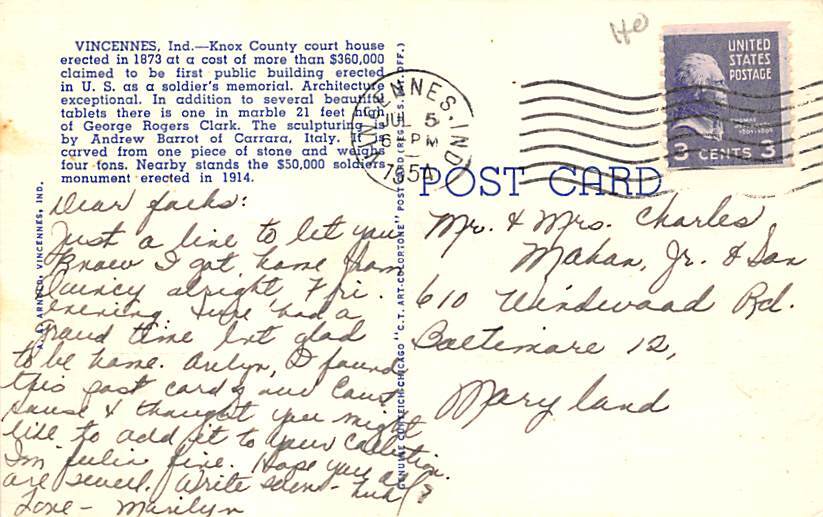 VINCENNES, Ind.—Knox County court house
erected in 1873 at a cost of more than $360,000
claimed to be first public building erected
in U. S. as a soldier's memorial. Architecture
exceptional. In addition to several beautiful
tablets there is one in marble 21 feet high
of George Rogers Clark. The sculpturing is
by Andrew Barrot of Carrara, Italy. It is
carved from one piece of stone and weighs
four tons. Nearby stands the $50,000 soldiers
monument erected in 1914.
Dear folks:
Just a line to let you
know I got home from
Quincy alright, Fri.
evening. Sure had a
grand time but glad
to be home. Arlyn, I found
this post card of our Court
house & thought you might
like to add it to your collection.
I'm feelin fine. Hope you all
are swell. Write soon - huh?
Love - Marilyn
VINCENNES, IND.
GENUINE CURTEICH-CHICAGO "C. T. ART-COLORTONE" POST CARD (REG. U. S. PAT. OFF.)
VINCENNES, IND.
JUL 5
6 PM
1954
Ho
UNITED
STATES
POSTAGE
THOMAS
3 CENTS 3
POST CARD
Mr. & Mrs. Charles
Mahan, Jr. & Son
610 Windwood Rd.
Baltimore 12,
Maryland